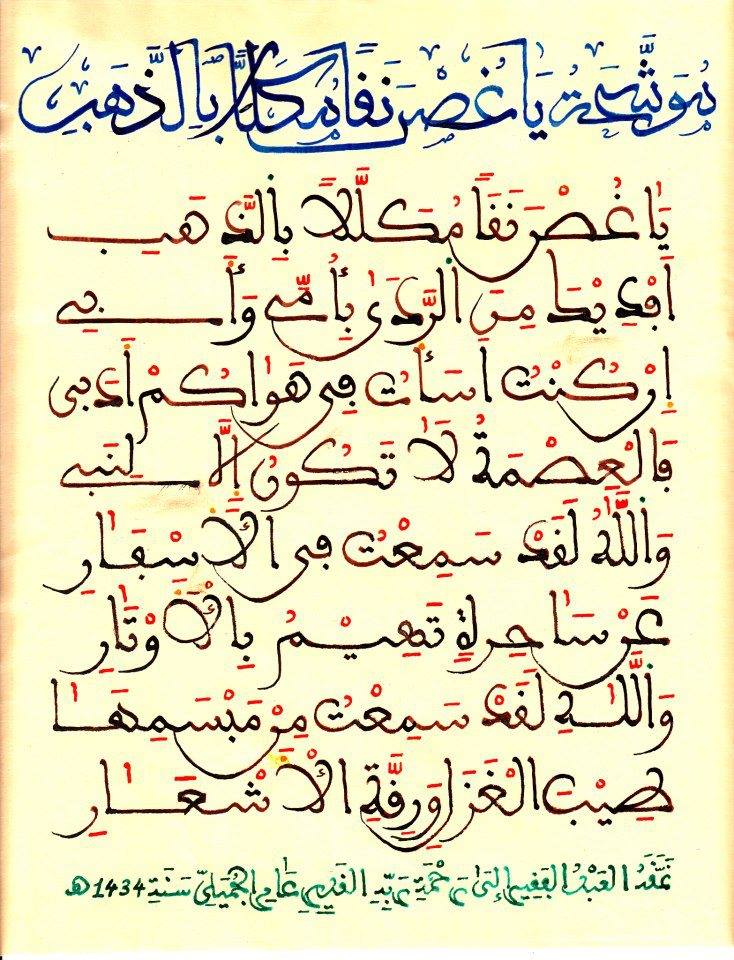 مُوَشَّحَةُ يَا غُصْنَ نَقًا مُكَلَّلًا بِالذَّهَبِ
يَا غُصْنَ نَقًا مُكَلَّلًا بِالذَّهَبِ
أَفْدِيكَ مِنَ الرَّدَىٰ بِأُمِّي وَأَبِي
إِنْ كُنْتُ أَسَأْتُ فِي هَوَاكُمْ أَدَبِي
فَالْعِصْمَةُ لَا تَكُونُ إِلَّا لِنَبِي
وَاللَّهِ لَقَدْ سَمِعْتُ فِي الْأَسْفَارِ
عَنْ سَاحِرَةٍ تَهِيمُ بِالْأَوْتَارِ
وَاللَّهِ لَقَدْ سَمِعْتُ مِنْ مَبْسَمِهَا
طِيبَ الْغَزَلِ وَرِقَّةِ الْأَشْعَارِ
نَمَّقَهُ الْعَبْدُ الْفَقِيرُ إِلَىٰ رَحْمَةِ رَبِّهِ الْقَدِيرِ عَامِر الْجُمَيْلِيّ سَنَةِ 1434هـ